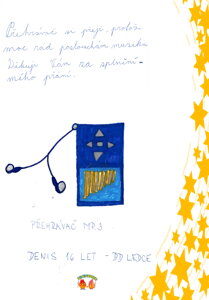 Přehrávač si přeji, protože
moc rád poslouchám muziku
Děkuji Vám za splnění
mého přání.
PŘEHRÁVAČ MP3
DENIS 16 LET - DD LEDCE